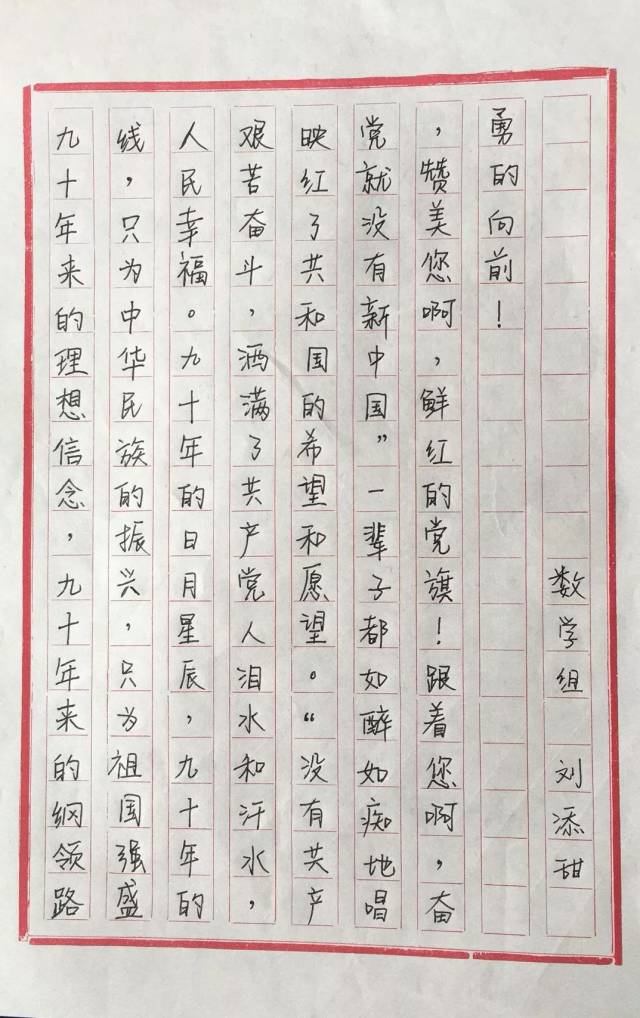 九十年来的理想信念，九十年来的纲领路
线，只为中华民族的振兴，只为祖国强盛
人民幸福。九十年的日月星辰，九十年的
艰苦奋斗，洒满了共产党人泪水和汗水，
映红了共和国的希望和愿望。“没有共产
党就没有新中国”一辈子都如醉如痴地唱
，赞美您啊，鲜红的党旗！跟着您啊，奋
勇的向前！
数学组 刘添甜